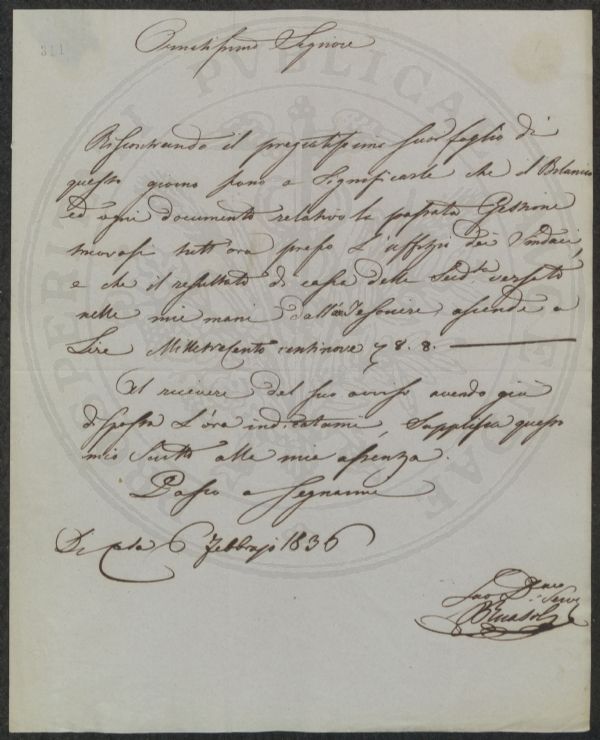 311
Ornatissimo Signore
Riscontrando il pregiatissimo suo foglio di
questo giorno sono a significarle che il Bilancio
ed ogni documento relativo la passata Gestione
trovasi tutt'ora presso l'uffizio dei Sindaci,
e che il resultato di cassa della Sud.ta versato
nelle mie mani dall' Tesoriere ascende a
Lire Milletrecento ventinove 8. 8.
Al ricevere del suo avviso avendo già
disposta l'ora indicatami, supplisca questo
mio scritto alla mia assenza.
Passo a segnarmi
Di 6 Febbrajo 1836
Suo D.mo Serv